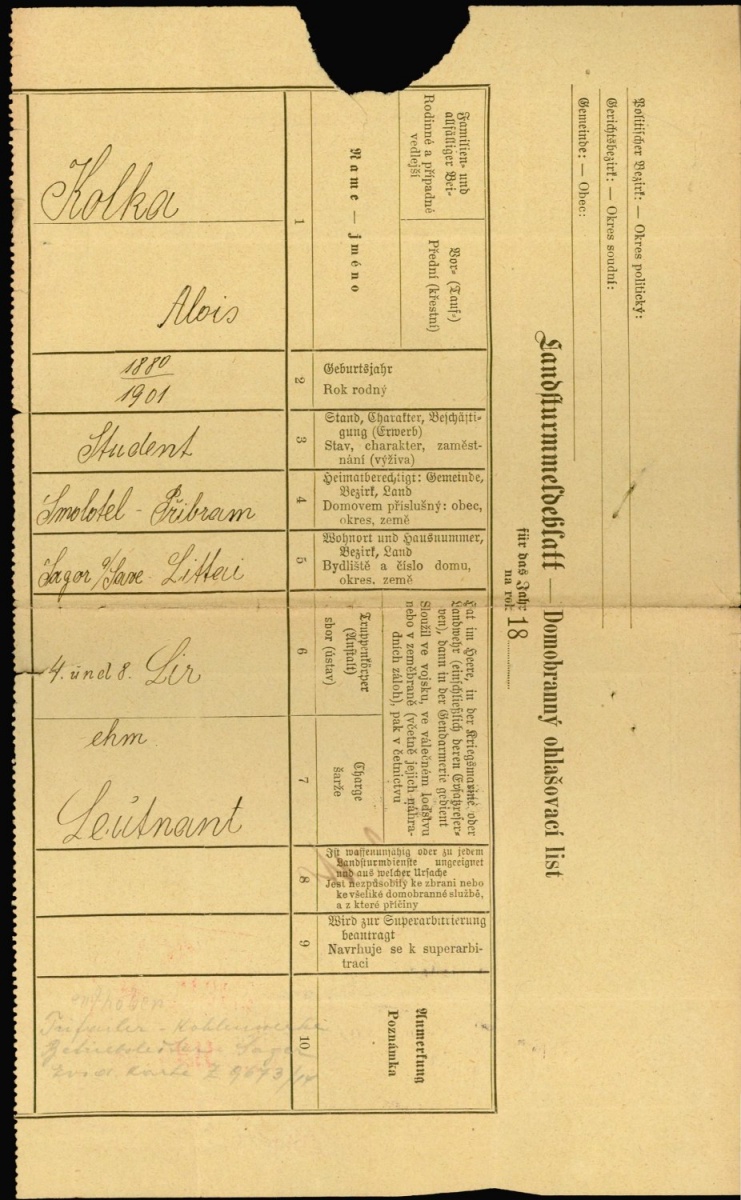 Politischer Bezirk: — Okres politický:
Gerichtsbezirk: — Okres soudní:
Gemeinde: — Obec:
Landsturmmeldeblatt — Domobranný ohlašovací list
für das Jahr
na rok 18
Name — jméno
Familien- und
allfälliger Bei-
Rodinné a případné
vedlejší
Vor- (Tauf-)
Přední (křestní)
1
Kolka
Alois
Geburtsjahr
Rok rodný
2
1880
1901
Stand, Charakter, Beschäfti-
gung (Erwerb)
Stav, charakter, zaměst-
nání (výživa)
3
Student
Heimatberechtigt: Gemeinde,
Bezirk, Land
Domovem příslušný: obec,
okres, země
4
Smolotel - Přibram
Wohnort und Hausnummer,
Bezirk, Land
Bydliště a číslo domu,
okres, země
5
Sagor a/Save - Littai
Hat im Heere, in der Kriegsmarine oder
Landwehr (einschließlich deren Ersatzreser-
ven), dann in der Gendarmerie gedient
Sloužil ve vojsku, ve válečném loďstvu
nebo v zeměbraně (včetně jejich náhra-
dních záloh), pak v četnictvu
Truppenkörper
(Anstalt)
sbor (ústav)
6
4. und 8. Lir
Charge
šarže
7
ehm
Leutnant
Ist waffenunfähig oder zu jedem
Landsturmdienste ungeeignet
und aus welcher Ursache
Jest nezpůsobilý ke zbrani nebo
ke všeliké domobranné službě,
a z které příčiny
8
Wird zur Superarbitrierung
beantragt
Navrhuje se k superarbi-
traci
9
Anmerkung
Poznámka
10
enthoben
Trifailer Kohlenwerke
Sagor